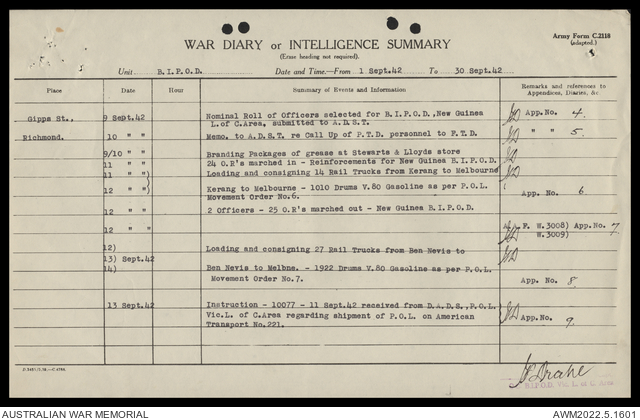 Army Form C.2118
(adapted.)
WAR DIARY or INTELLIGENCE SUMMARY
(Erase heading not required).
Unit B.I.P.O.D. Date and Time.—From 1 Sept.42 To 30 Sept.42
Place Date Hour Summary of Events and Information Remarks and references to
Appendices, Diaries, &c
Gipps St., 9 Sept.42 Nominal Roll of Officers selected for B.I.P.O.D.,New Guinea App.No. 4.
L.of C.Area, submitted to A.D.S.T.
Richmond. 10 " " Memo. to A.D.S.T. re Call Up of P.T.D. personnel to P.T.D. " " 5.
9/10 " " Branding Packages of grease at Stewarts & Lloyds store
11 " " 24 O.R's marched in - Reinforcements for New Guinea B.I.P.O.D.
11 " ") Loading and consigning 14 Rail Trucks from Kerang to Melbourne
12 " ") Kerang to Melbourne - 1010 Drums V.80 Gasoline as per P.O.L. App. No. 6
Movement Order No.6.
12 " " 2 Officers - 25 O.R's marched out - New Guinea B.I.P.O.D.
12 " " F. W.3008) App.No. 7
W.3009)
12) Loading and consigning 27 Rail Trucks from Ben Nevis to
13) Sept.42
14) Ben Nevis to Melbne. - 1922 Drums V.80 Gasoline as per P.O.L.
Movement Order No.7. App. No. 8.
13 Sept.42 Instruction - 10077 - 11 Sept.42 received from D.A.D.S.,P.O.L.
Vic.L. of C.Area regarding shipment of P.O.L. on American App.No. 9.
Transport No.221.
Drake
B.I.P.O.D. Vic. L. of C. Area
AUSTRALIAN WAR MEMORIAL AWM2022.5.1601